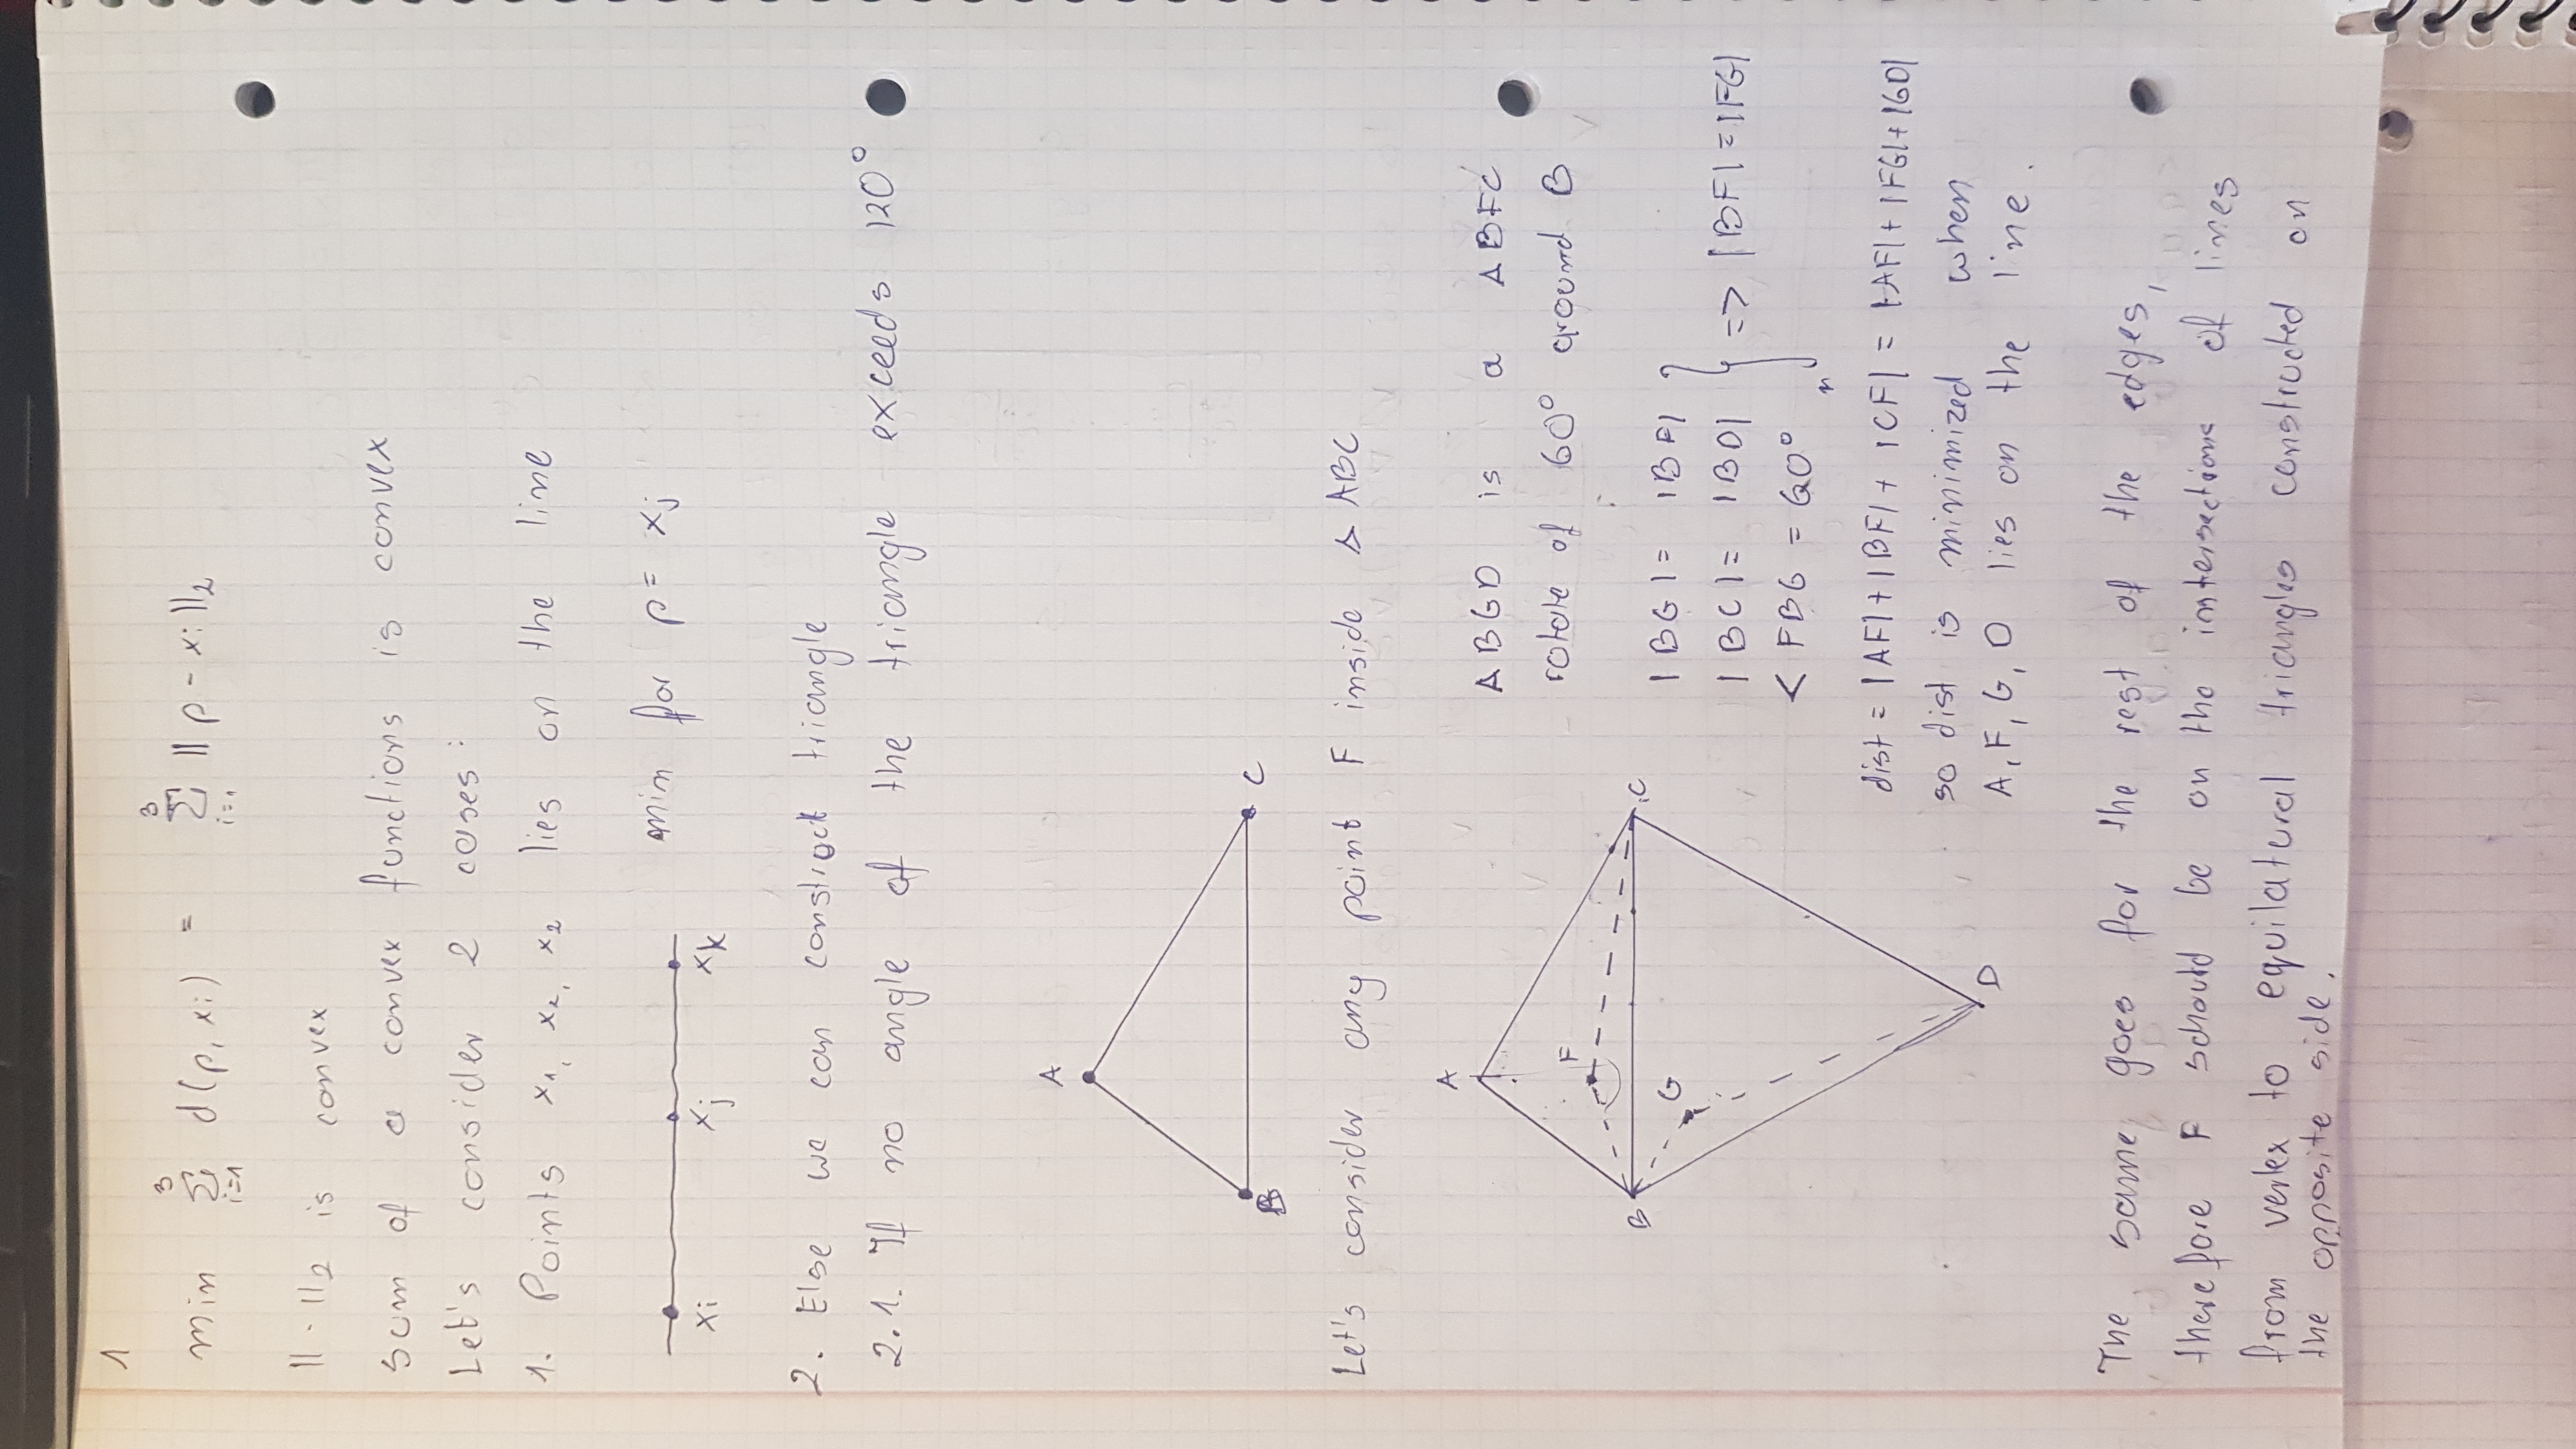 1
min ∑_{i=1}^{3} d(p, xi) = ∑_{i=1}^{3} || p - xi ||₂
|| · ||₂ is convex
sum of a convex functions is convex
Let's consider 2 cases:
1. Points x₁, x₂, x₂ lies on the line
xi xj xk min for p = xj
2. Else we can construct triangle
2.1. If no angle of the triangle exceeds 120°
A
B C
Let's consider any point F inside △ ABC
A
B C
F
G
D
△ BGD is a △ BFC
rotate of 60° around B
| BG | = | BF |
| BC | = | BD | } => |BF| = |FG|
< FBG = 60°
dist = |AF| + |BF| + |CF| = |AF| + |FG| + |GD|
so dist is minimized when
A, F, G, D lies on the line.
The same goes for the rest of the edges,
therefore F schould be on the intersections of lines
from vertex to equilatural triangles constructed on
the opposite side.